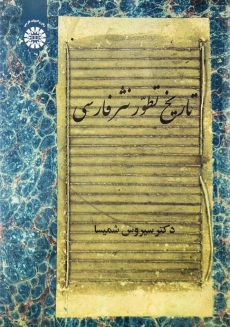 تاریخ تطوّر نثر فارسی
دکتر سیروس شمیسا